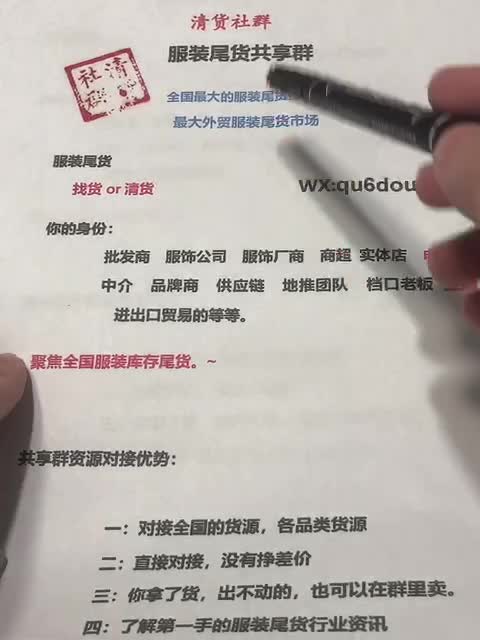 清货社群
服装尾货共享群
清
社
群
全国最大的服装尾货
最大外贸服装尾货市场
服装尾货
找货 or 清货
WX:qu6dou
你的身份：
批发商 服饰公司 服饰厂商 商超 实体店
中介 品牌商 供应链 地推团队 档口老板
进出口贸易的等等。
聚焦全国服装库存尾货。~
共享群资源对接优势：
一：对接全国的货源，各品类货源
二：直接对接，没有挣差价
三：你拿了货，出不动的，也可以在群里卖。
四：了解第一手的服装尾货行业资讯